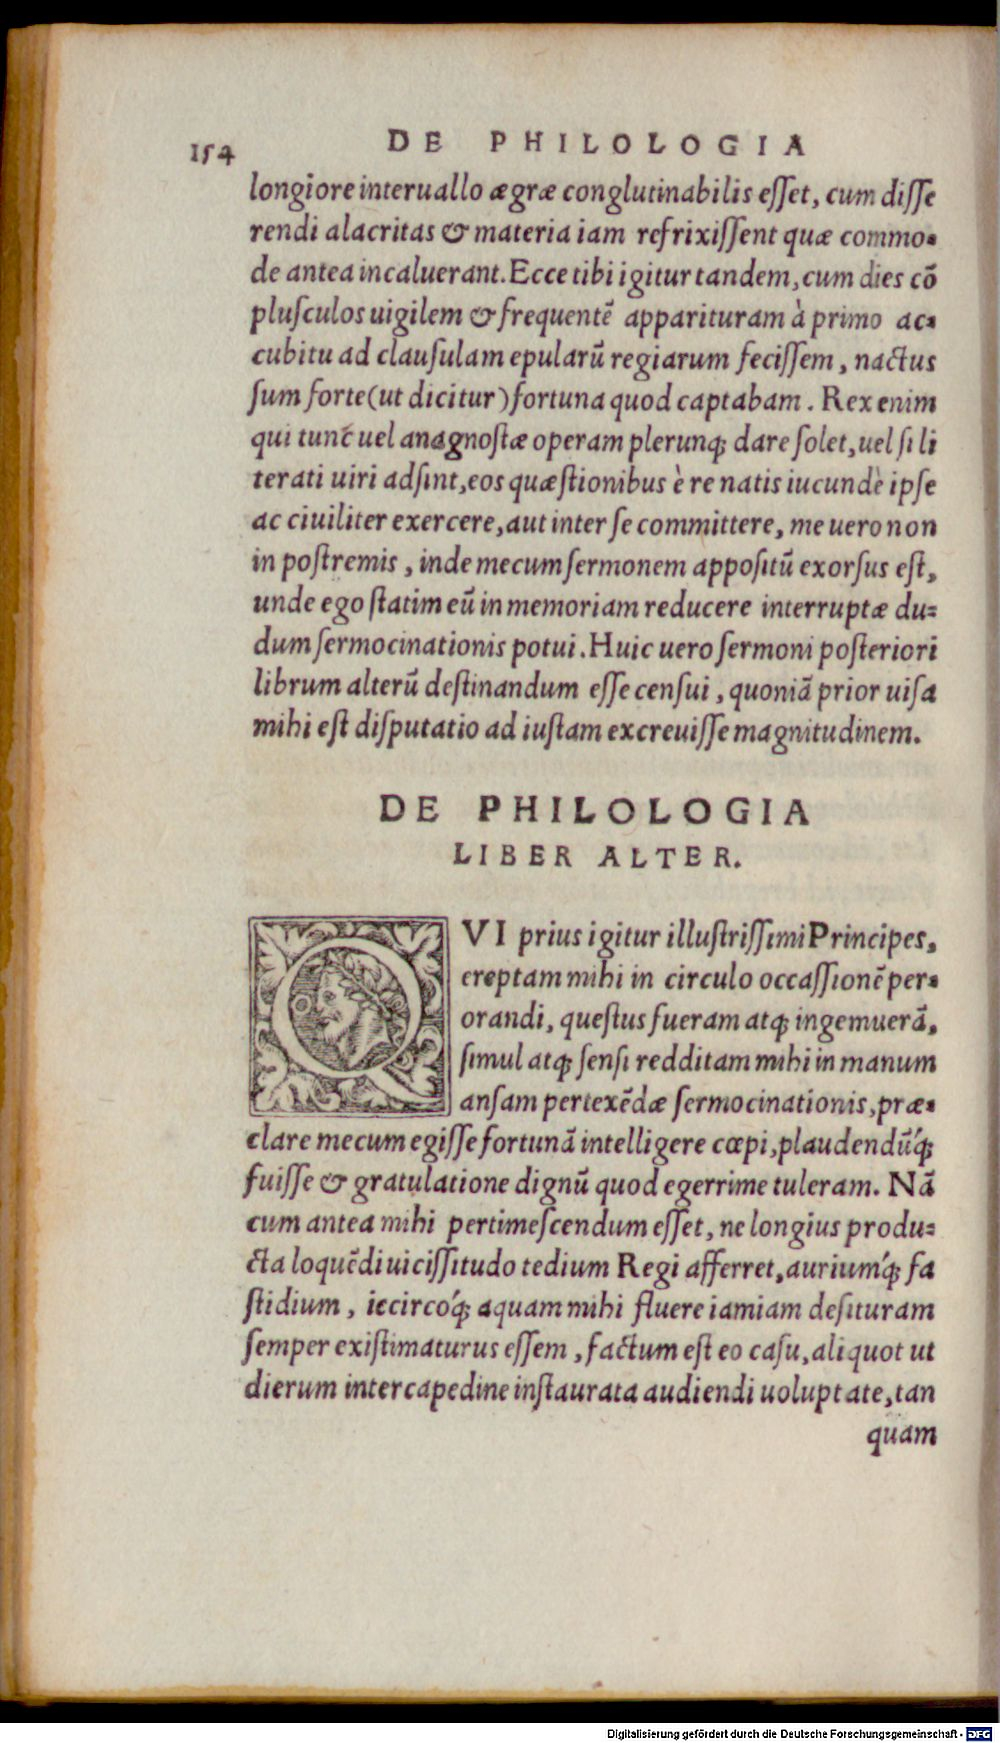 154 DE PHILOLOGIA
longiore interuallo ægræ conglutinabilis esset, cum disse
rendi alacritas & materia iam refrixissent quæ commo-
de antea incaluerant. Ecce tibi igitur tandem, cum dies cō
plusculos uigilem & frequentē apparituram à primo ac-
cubitu ad clausulam epularū regiarum fecissem, nactus
sum forte (ut dicitur) fortuna quod captabam. Rex enim
qui tunc uel anagnostæ operam plerunq; dare solet, uel si li
terati uiri adsint, eos quæstionibus è re natis iucundè ipse
ac ciuiliter exercere, aut inter se committere, me uero non
in postremis, inde mecum sermonem appositū exorsus est,
unde ego statim eū in memoriam reducere interruptæ du-
dum sermocinationis potui. Huic uero sermoni posteriori
librum alterū destinandum esse censui, quoniā prior uisa
mihi est disputatio ad iustam excreuisse magnitudinem.
DE PHILOLOGIA
LIBER ALTER.
QVI prius igitur illustrissimi Principes,
ereptam mihi in circulo occassionē per-
orandi, questus fueram atq; ingemuerā,
simul atq; sensi redditam mihi in manum
ansam pertexēdæ sermocinationis, præ-
clare mecum egisse fortunā intelligere cœpi, plaudendū́q;
fuisse & gratulatione dignū quod egerrime tuleram. Nā
cum antea mihi pertimescendum esset, ne longius produ-
cta loquēdi uicissitudo tedium Regi afferret, auriumq́; fa
stidium, iccircoq́; aquam mihi fluere iamiam desituram
semper existimaturus essem, factum est eo casu, aliquot ut
dierum intercapedine instaurata audiendi uoluptate, tan
quam
Digitalisierung gefördert durch die Deutsche Forschungsgemeinschaft - DFG